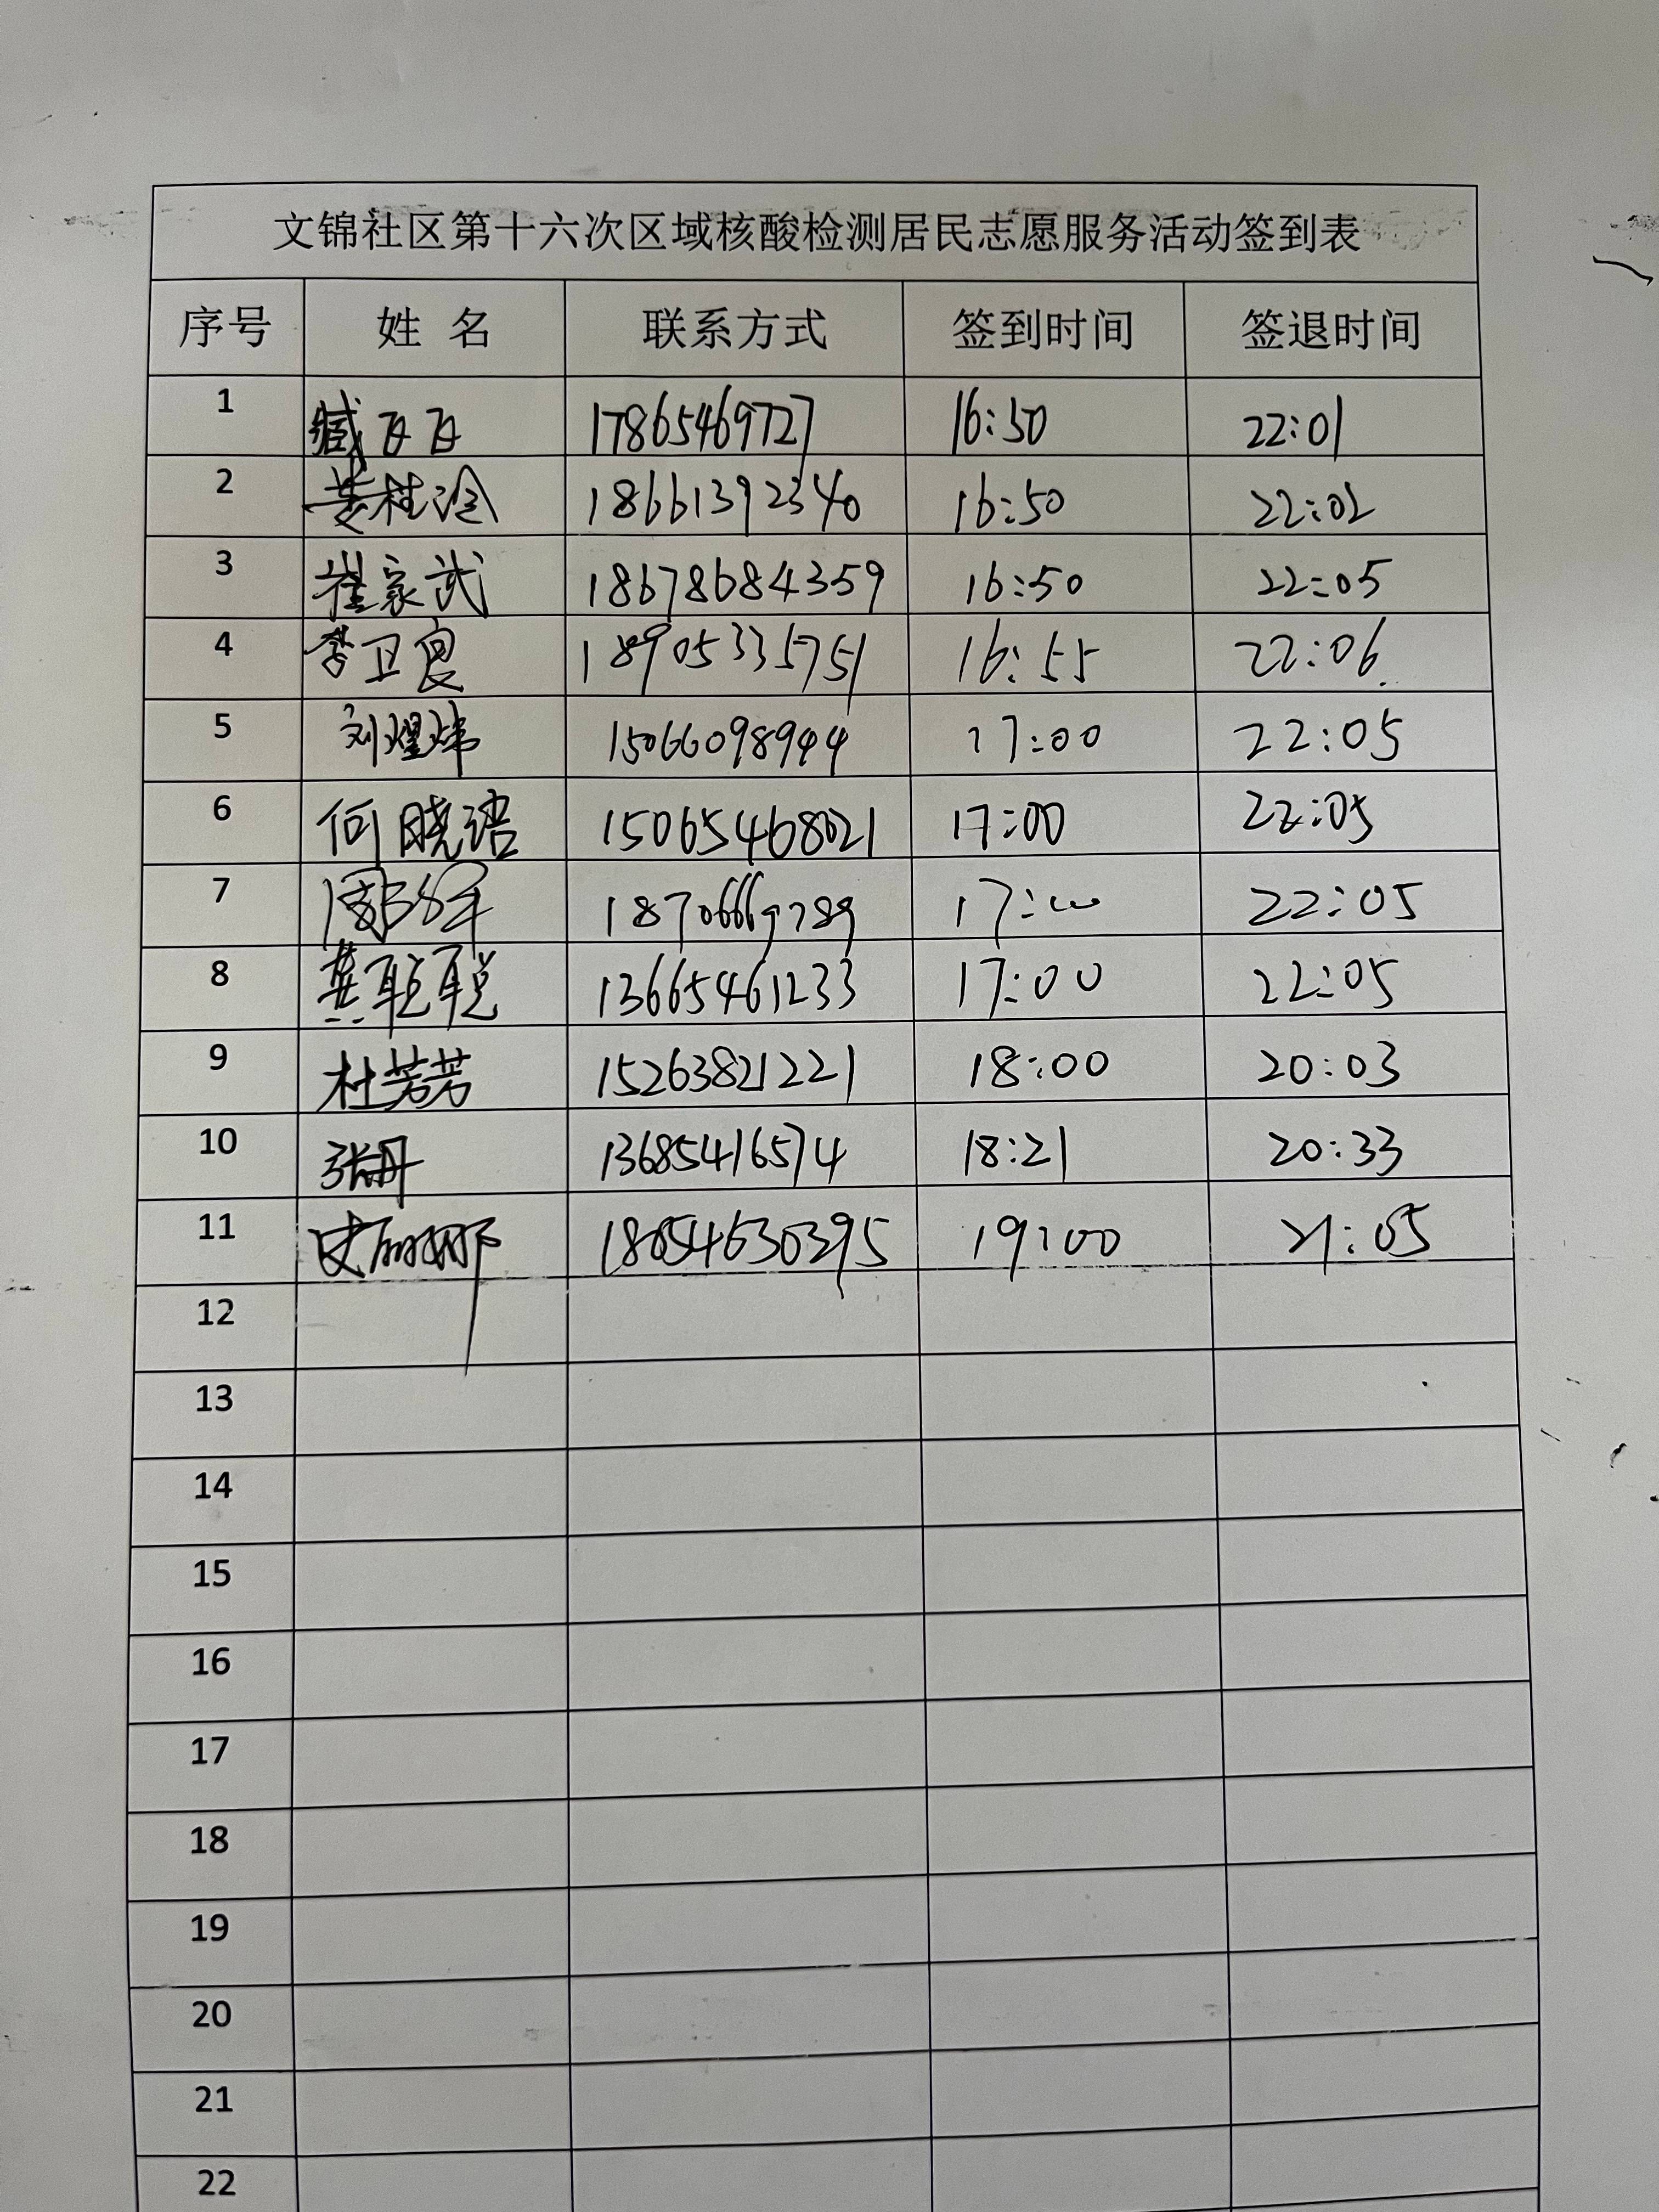 文锦社区第十六次区域核酸检测居民志愿服务活动签到表
序号 姓 名 联系方式 签到时间 签退时间
1 臧 17865469727 16:50 22:01
2 18661392340 16:50 22:02
3 崔家武 18678684359 16:50 22:05
4 李卫良 18905335751 16:55 22:06
5 刘煜炜 15066098944 17:00 22:05
6 何晓语 15065468021 17:00 22:05
7 18706669789 17:00 22:05
8 龚聪聪 13665461233 17:00 22:05
9 杜芳芳 15263821221 18:00 20:03
10 张丹 13685416574 18:21 20:33
11 史丽娜 18654630395 19:00 21:05
12
13
14
15
16
17
18
19
20
21
22